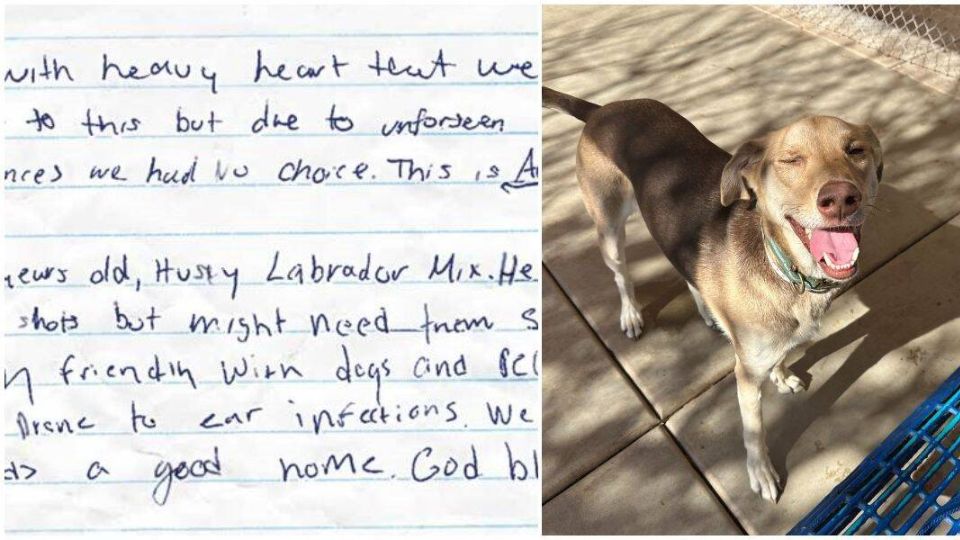 with heavy heart that we
to this but due to unforseen
nces we had no choice. This is A
years old, Husky Labrador Mix. He
shots but might need them s
y friendly with dogs and pe
Prone to ear infections. We
ds a good home. God bl